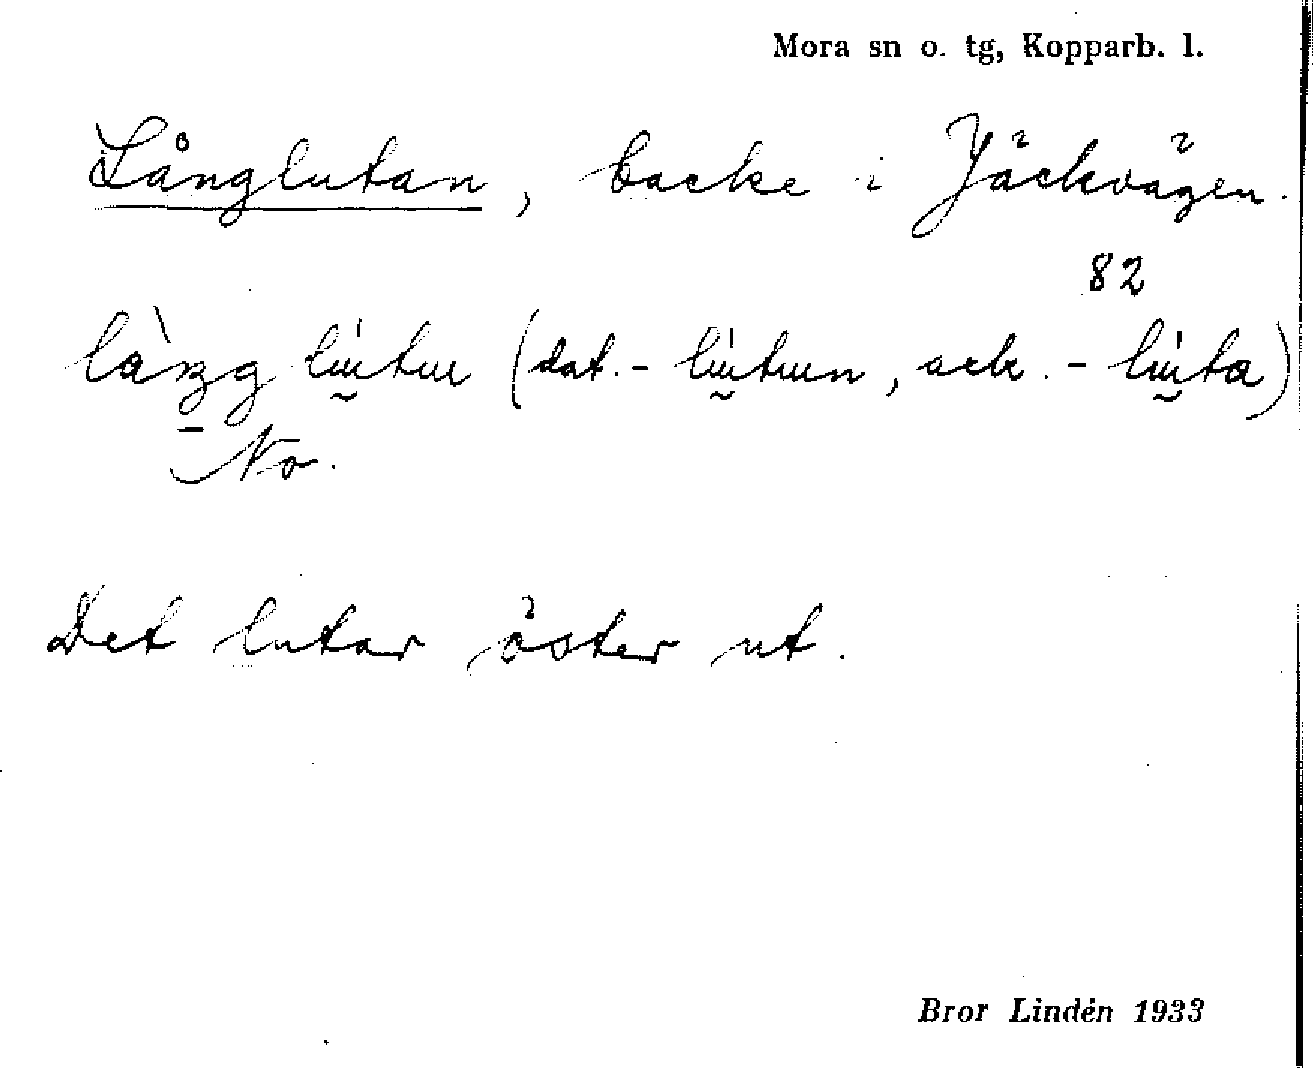 Mora sn o. tg, Kopparb. l.
Långlutan, backe i Jäckvägen.
82
(dat. - , ack. -
No.
Det lutar öster ut.
Bror Lindén 1933